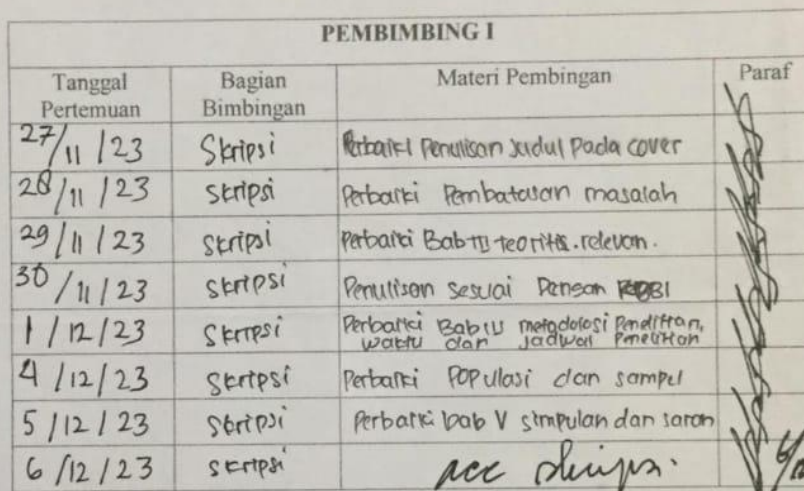 PEMBIMBING I
Tanggal Pertemuan Bagian Bimbingan Materi Pembingan Paraf
27/11/23 Skripsi Perbaiki Penulisan Judul Pada cover
28/11/23 Skripsi Perbaiki Pembatasan masalah
29/11/23 Skripsi Perbaiki Bab II teoritis. relevan.
30/11/23 Skripsi Penulisan sesuai Dengan KBBI
1/12/23 Skripsi Perbaiki Bab metodologi Penelitian,
waktu dan jadwal Penelitian
4/12/23 Skripsi Perbaiki Populasi dan sampel
5/12/23 Skripsi Perbaiki bab V simpulan dan saran
6/12/23 Skripsi acc skripsi.